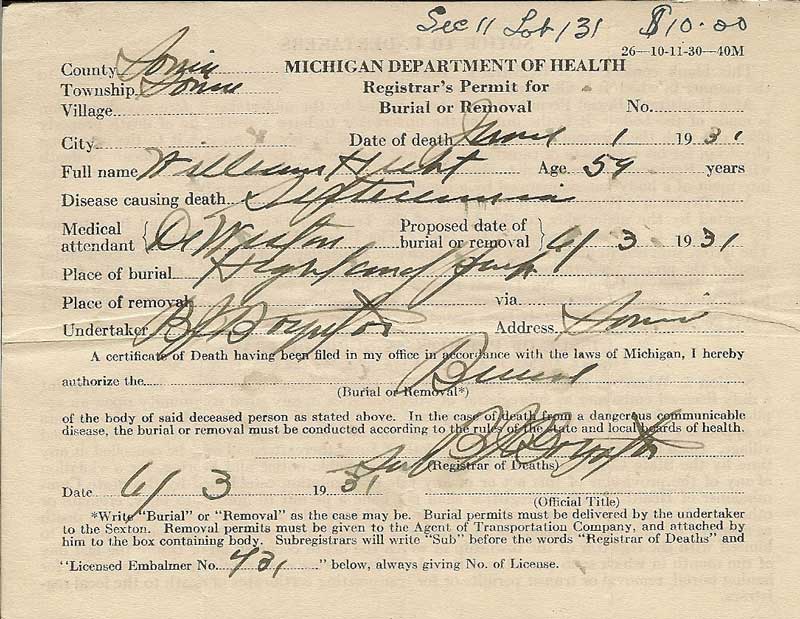 Sec 11 Lot 131 $10.00
26—10-11-30—40M
County Ionia
MICHIGAN DEPARTMENT OF HEALTH
Township Ionia
Registrar's Permit for
Village
Burial or Removal No.
City
Date of death June 1 1931
Full name William Hunt Age 59 years
Disease causing death Septicemia
Medical attendant Dr Weston Proposed date of burial or removal 6/3 1931
Place of burial Highland Park
Place of removal via
Undertaker B C Boynton Address Ionia
A certificate of Death having been filed in my office in accordance with the laws of Michigan, I hereby
authorize the Burial
(Burial or Removal*)
of the body of said deceased person as stated above. In the case of death from a dangerous communicable
disease, the burial or removal must be conducted according to the rules of the state and local boards of health.
Sub B C Boynton
(Registrar of Deaths)
Date 6/3 1931
(Official Title)
*Write "Burial" or "Removal" as the case may be. Burial permits must be delivered by the undertaker
to the Sexton. Removal permits must be given to the Agent of Transportation Company, and attached by
him to the box containing body. Subregistrars will write "Sub" before the words "Registrar of Deaths" and
"Licensed Embalmer No. 431" below, always giving No. of License.